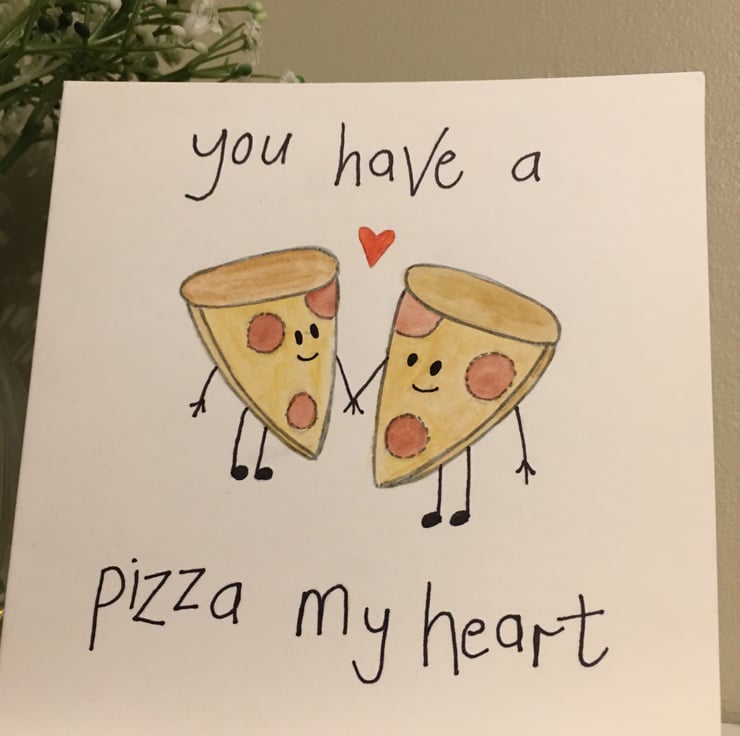 you have a
pizza my heart